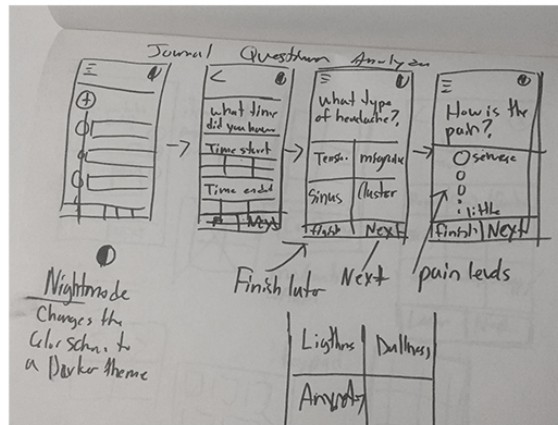 Journal
<
What time
did you have
Time start
Time ended
Next
What type
of headache?
Tensi. migraine
Sinus Cluster
finish Next
How is the
pain?
severe
little
finish Next
Finish later Next pain levels
Nightmode
Changes the
Color schm. to
a Darker theme
Dullness